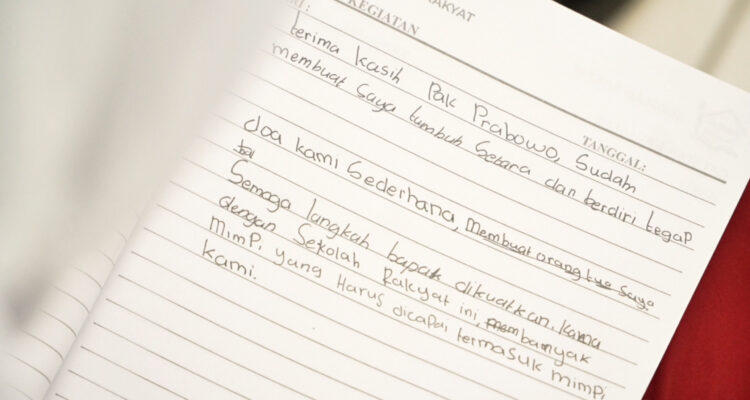 RAKYAT
KEGIATAN
TANGGAL:
terima kasih Pak Prabowo, Sudah
membuat Saya tumbuh Setara dan berdiri tegap
doa kami Sederhana, membuat orang tua Saya
Semoga langkah bapak dikuatkan. Karna
dengan Sekolah Rakyat ini, banyak
mimpi yang Harus dicapai termasuk mimpi
kami.